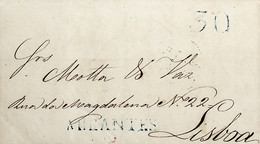 50
Snrs
Motta & Vaz
Rua da Magdalena Nº 22
ABRANTES
Lisboa